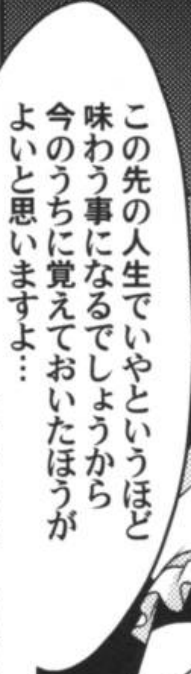 この先の人生でいやというほど
味わう事になるでしょうから
今のうちに覚えておいたほうが
よいと思いますよ…